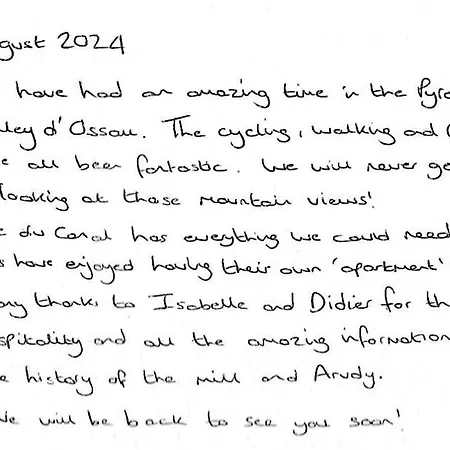 gust 2024
have had an amazing time in the Pyre
ley d'Ossau. The cycling, walking and
e all been fantastic. We will never ge
looking at those mountain views!
du Canal has everything we could need
s have enjoyed having their own 'apartment'
ny thanks to Isabelle and Didier for th
spitality and all the amazing information
e history of the mill and Arudy.
We will be back to see you soon!